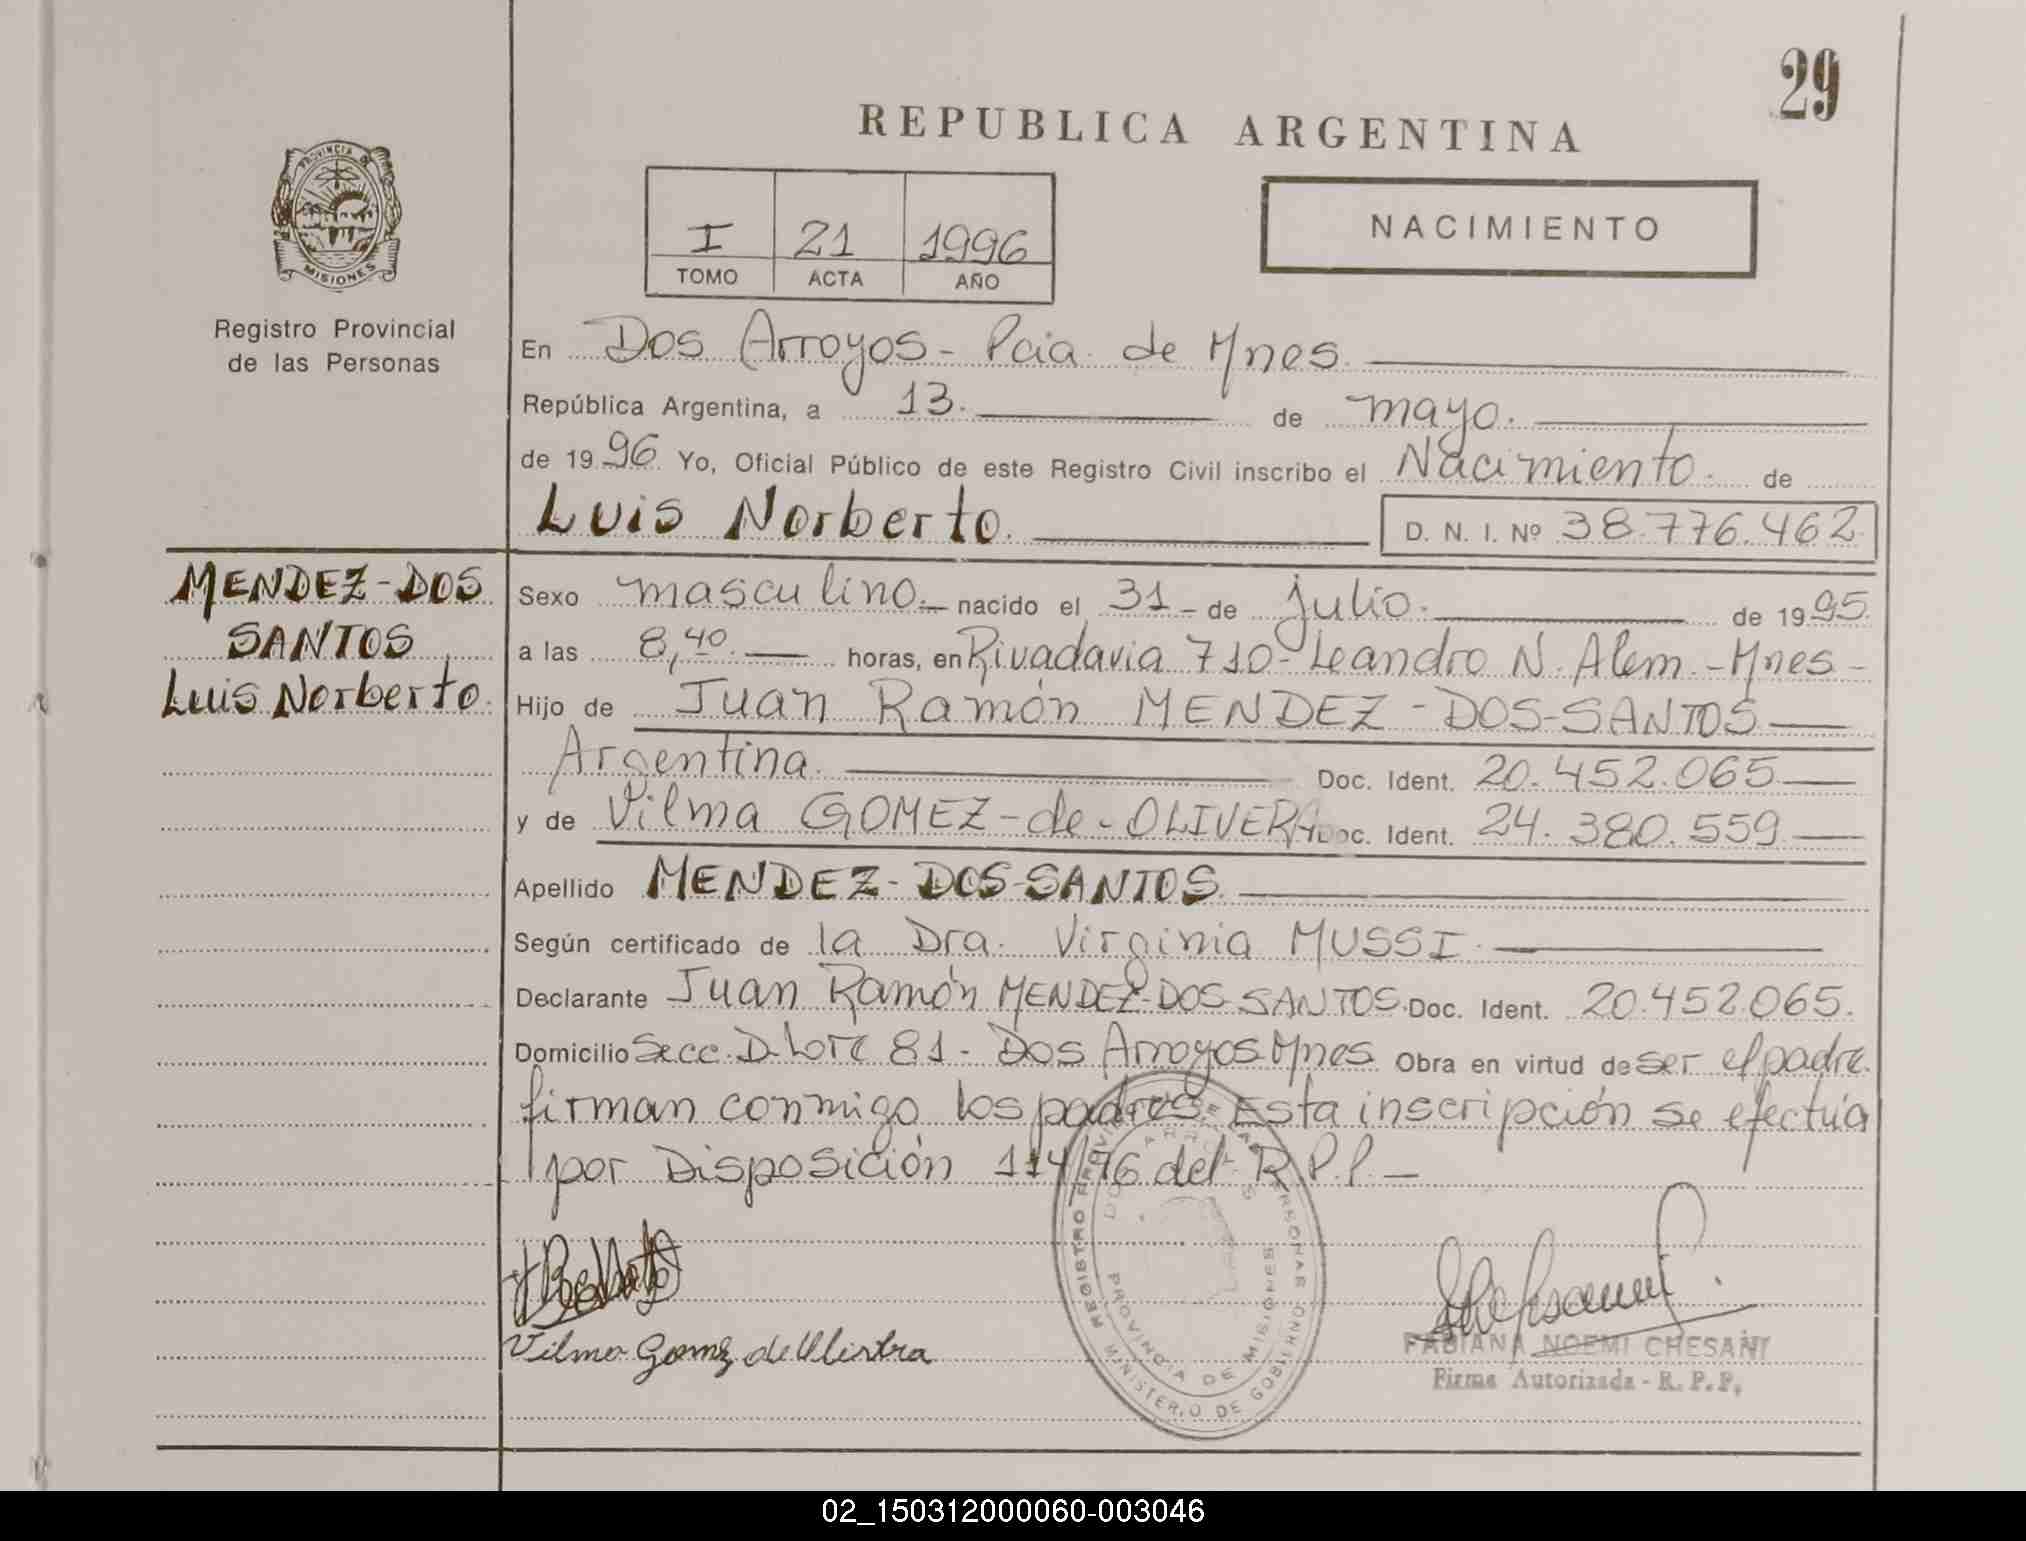 29
REPUBLICA ARGENTINA
PROVINCIA DE
MISIONES
I 21 1996
TOMO ACTA AÑO
NACIMIENTO
Registro Provincial
de las Personas
En Dos Arroyos - Pcia. de Mnes.
República Argentina, a 13. de mayo.
de 1996 Yo, Oficial Público de este Registro Civil inscribo el Nacimiento. de
Luis Norberto. D. N. I. Nº 38.776.462
MENDEZ-DOS
SANTOS
Luis Norberto.
Sexo masculino.- nacido el 31 - de julio. de 1995.
a las 8,40. horas, en Rivadavia 710- Leandro N. Alem.-Mnes-
Hijo de Juan Ramón MENDEZ-DOS-SANTOS
Argentina. Doc. Ident. 20.452.065
y de Vilma GOMEZ-de-OLIVERA Doc. Ident. 24.380.559
Apellido MENDEZ-DOS-SANTOS.
Según certificado de la Dra. Virginia MUSSI.
Declarante Juan Ramón MENDEZ-DOS-SANTOS. Doc. Ident. 20.452.065.
Domicilio Secc. D. Lote 81 - Dos Arroyos Mnes Obra en virtud de ser el padre.
firman conmigo los padres. Esta inscripción se efectúa
por Disposición 114/96 del R.P.P.-
REGISTRO PROVINCIAL DE LAS PERSONAS
DOS ARROYOS
PROVINCIA DE MISIONES
MINISTERIO DE GOBIERNO
Vilma Gomez de
FABIANA NOEMI CHESANI
Firma Autorizada - R. P. P.
02_150312000060-003046